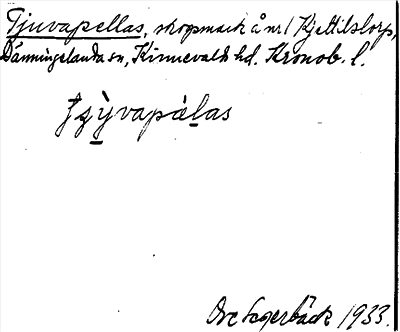 Tjuvapellas, skogsmark å nr 1 Kjettilstorp,
Dänningelanda sn, Kinnevalds hd. Kronob. l.
Ove Segerbäck 1933.